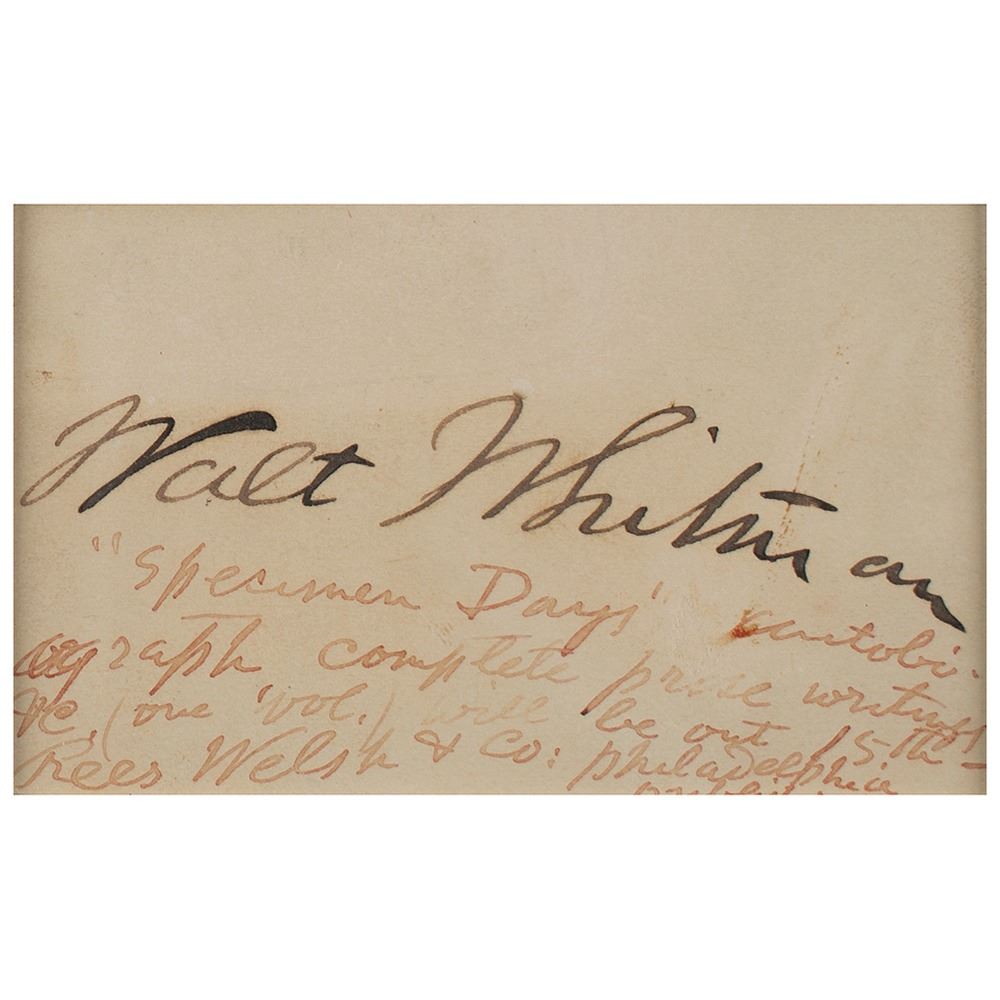 Walt Whitman
"Specimen Days" autobi-
ograph complete prose writings
&c. (one vol.) will be out 15th
Rees Welsh & Co: Philadelphia